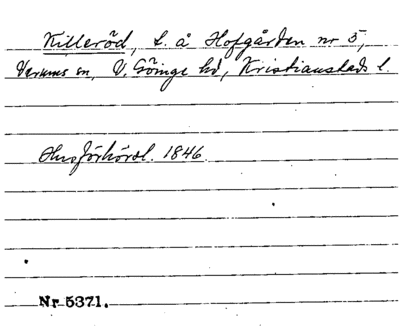 Killeröd, l. å Hofgården nr 5,
Verums sn, V. Göinge hd, Kristianstads l.
Husförhörsl. 1846.
Nr 5371.